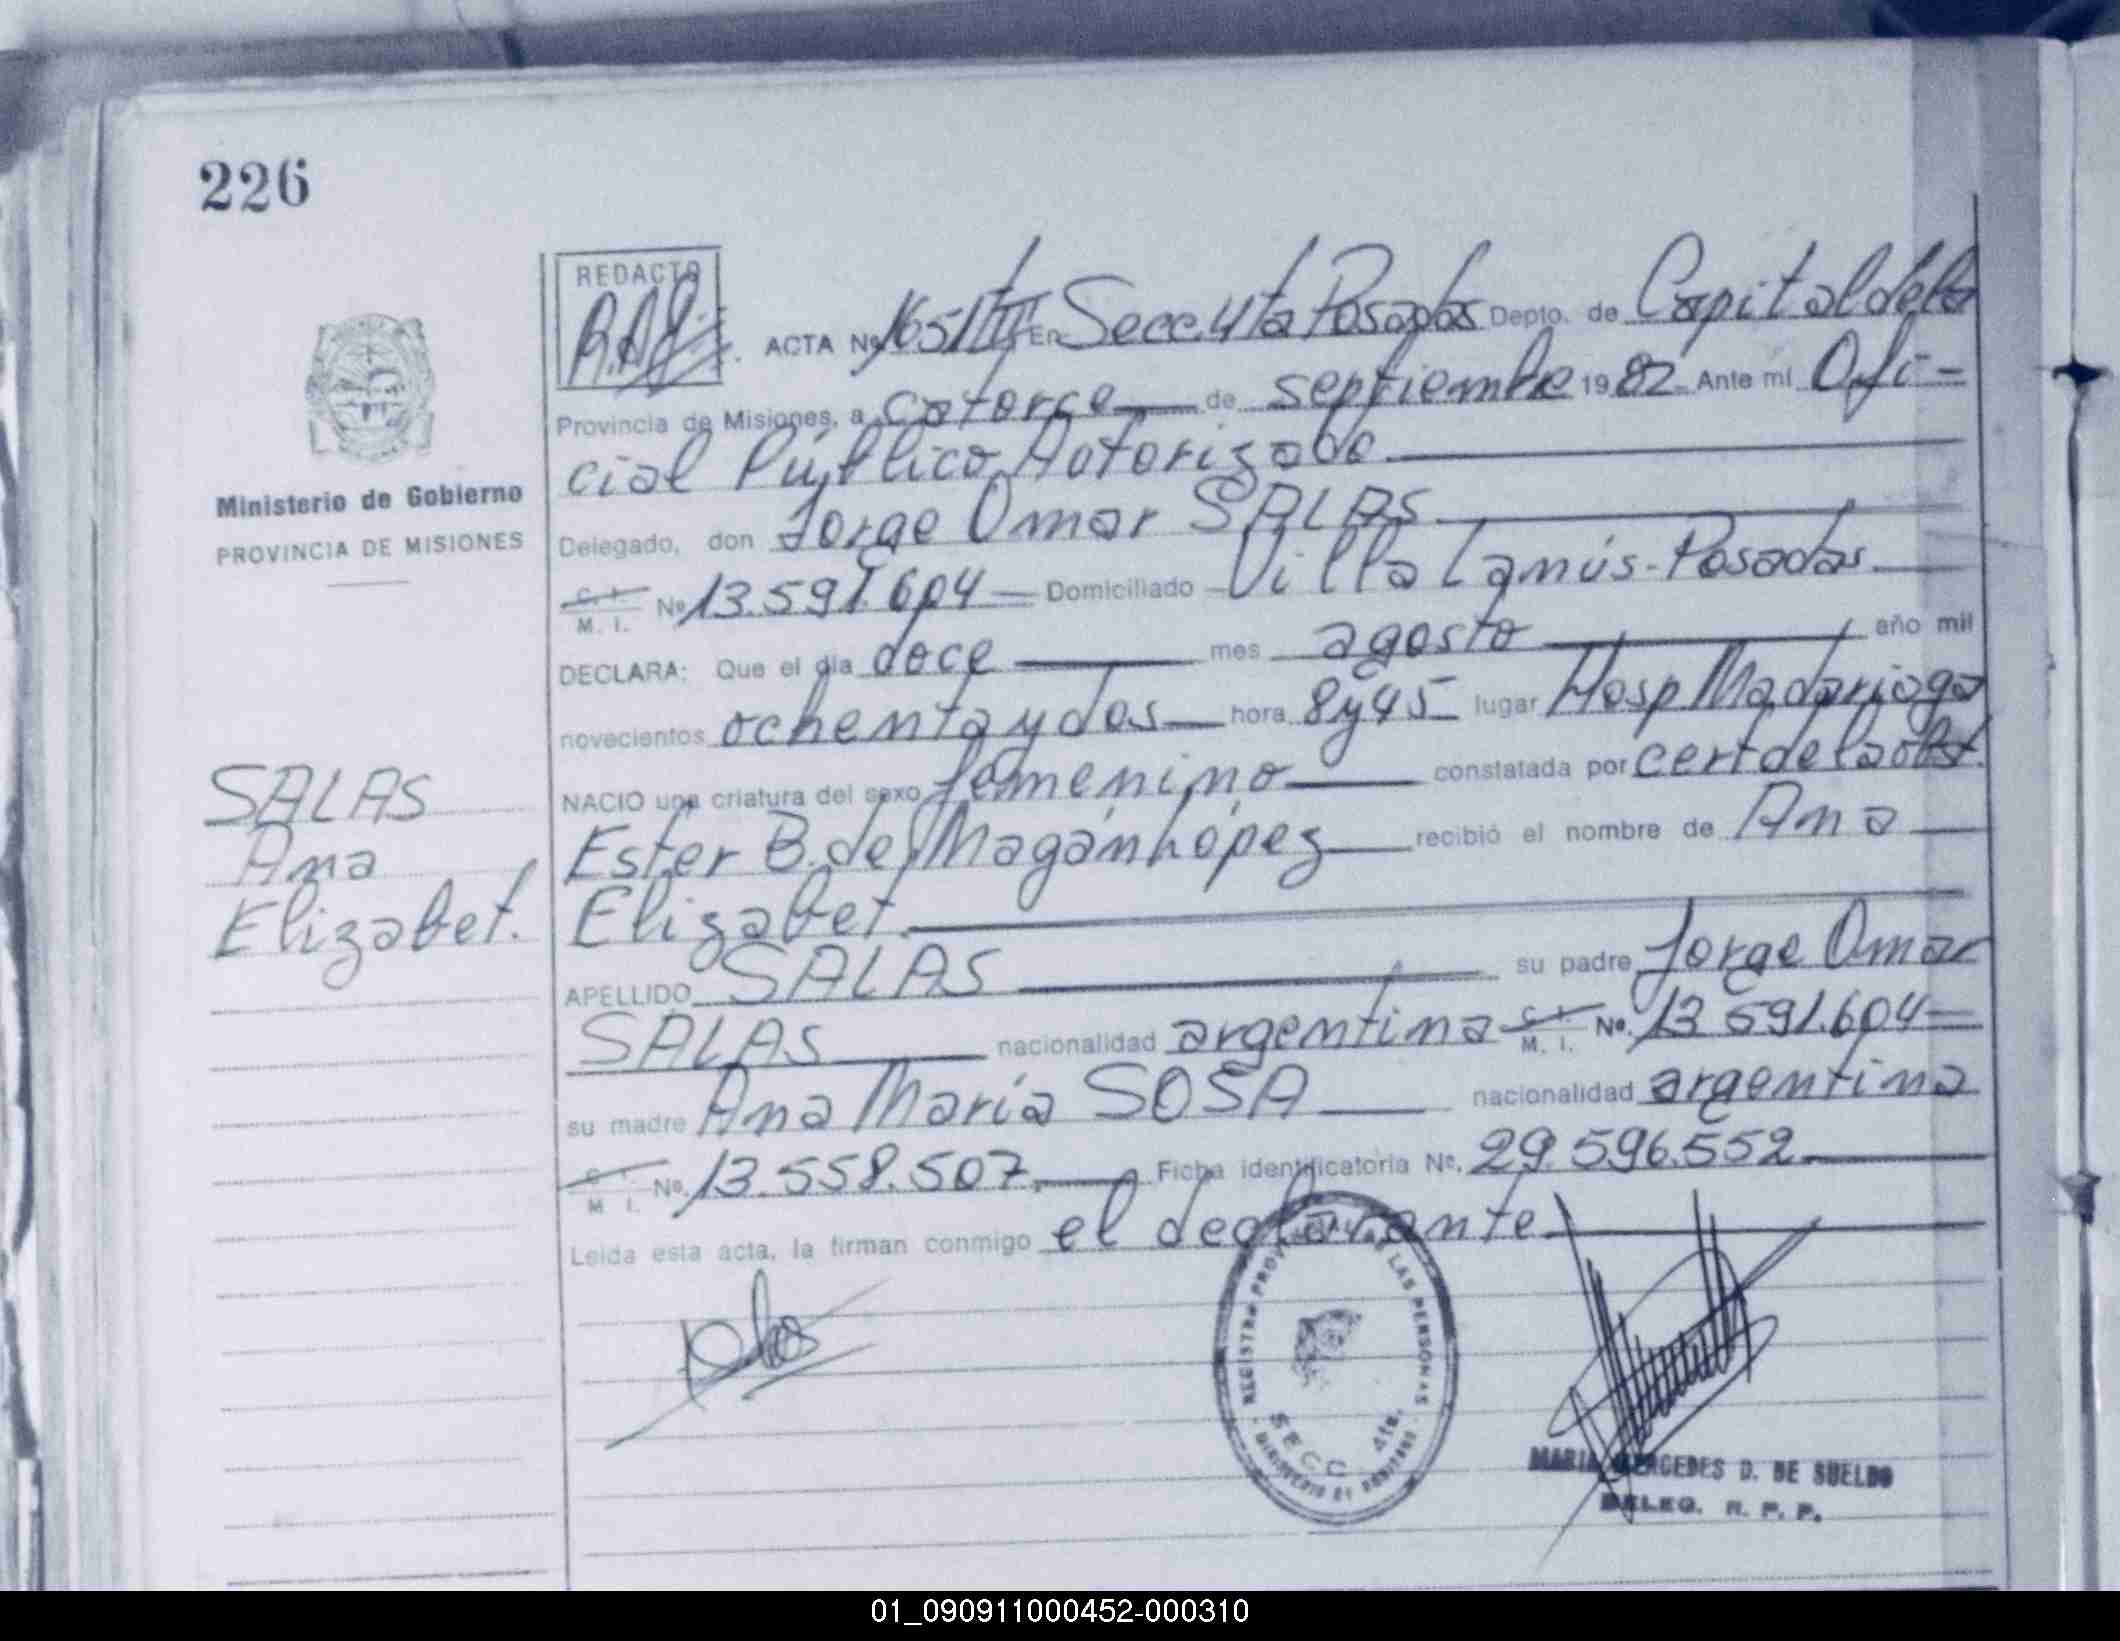 226
REDACTO
ACTA Nº 1651/III En Secc. 4ta Posadas Depto. de Capital de la
Provincia de Misiones, a catorce de septiembre 1982 Ante mí Ofi-
cial Público Autorizado
Ministerio de Gobierno
PROVINCIA DE MISIONES
Delegado, don Jorge Omar SALAS
C. I. M. I. Nº 13.591.604 Domiciliado Villa Lanús - Posadas
DECLARA: Que el día doce mes agosto año mil
novecientos ochenta y dos hora 8 y 45 lugar Hosp Madariaga
NACIO una criatura del sexo femenino constatada por cert de la obst.
SALAS
Ana
Elizabet.
Ester B. de Magán López recibió el nombre de Ana
Elizabet
APELLIDO SALAS su padre Jorge Omar
SALAS nacionalidad argentina C. I. M. I. Nº. 13.591.604
su madre Ana María SOSA nacionalidad argentina
C. I. M. I. Nº. 13.558.507. Ficha identificatoria Nº. 29.596.552
Leida esta acta, la firman conmigo el declarante
REGISTRO PROVINCIAL DE LAS PERSONAS
SECC. 4ta.
MINISTERIO DE GOBIERNO
MARIA MERCEDES D. DE SUELDO
DELEG. R. P. P.
01_090911000452-000310